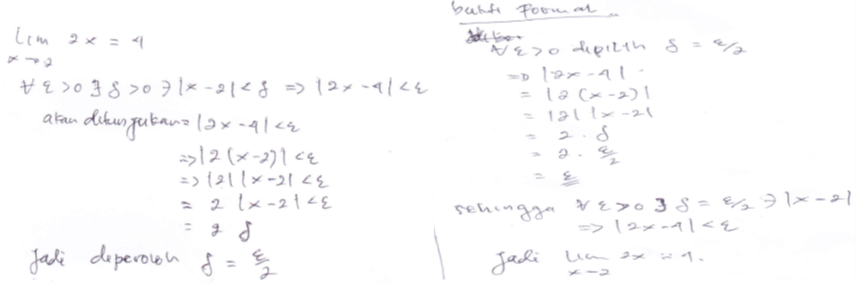 lim 2x = 4
x→2
∀ ε > 0 ∃ δ > 0 ∋ |x-2| < δ => |2x-4| < ε
akan ditunjukan = |2x-4| < ε
=> |2(x-2)| < ε
=> |2| |x-2| < ε
= 2 |x-2| < ε
= 2 δ
Jadi diperoleh δ = ε/2
bukti Formal
∀ ε > 0 dipilih δ = ε/2
=> |2x-4|
= |2(x-2)|
= |2| |x-2|
= 2 . δ
= 2 . ε/2
= ε
sehingga ∀ ε > 0 ∃ δ = ε/2 ∋ |x-2|
=> |2x-4| < ε
Jadi lim 2x = 4.
x→2